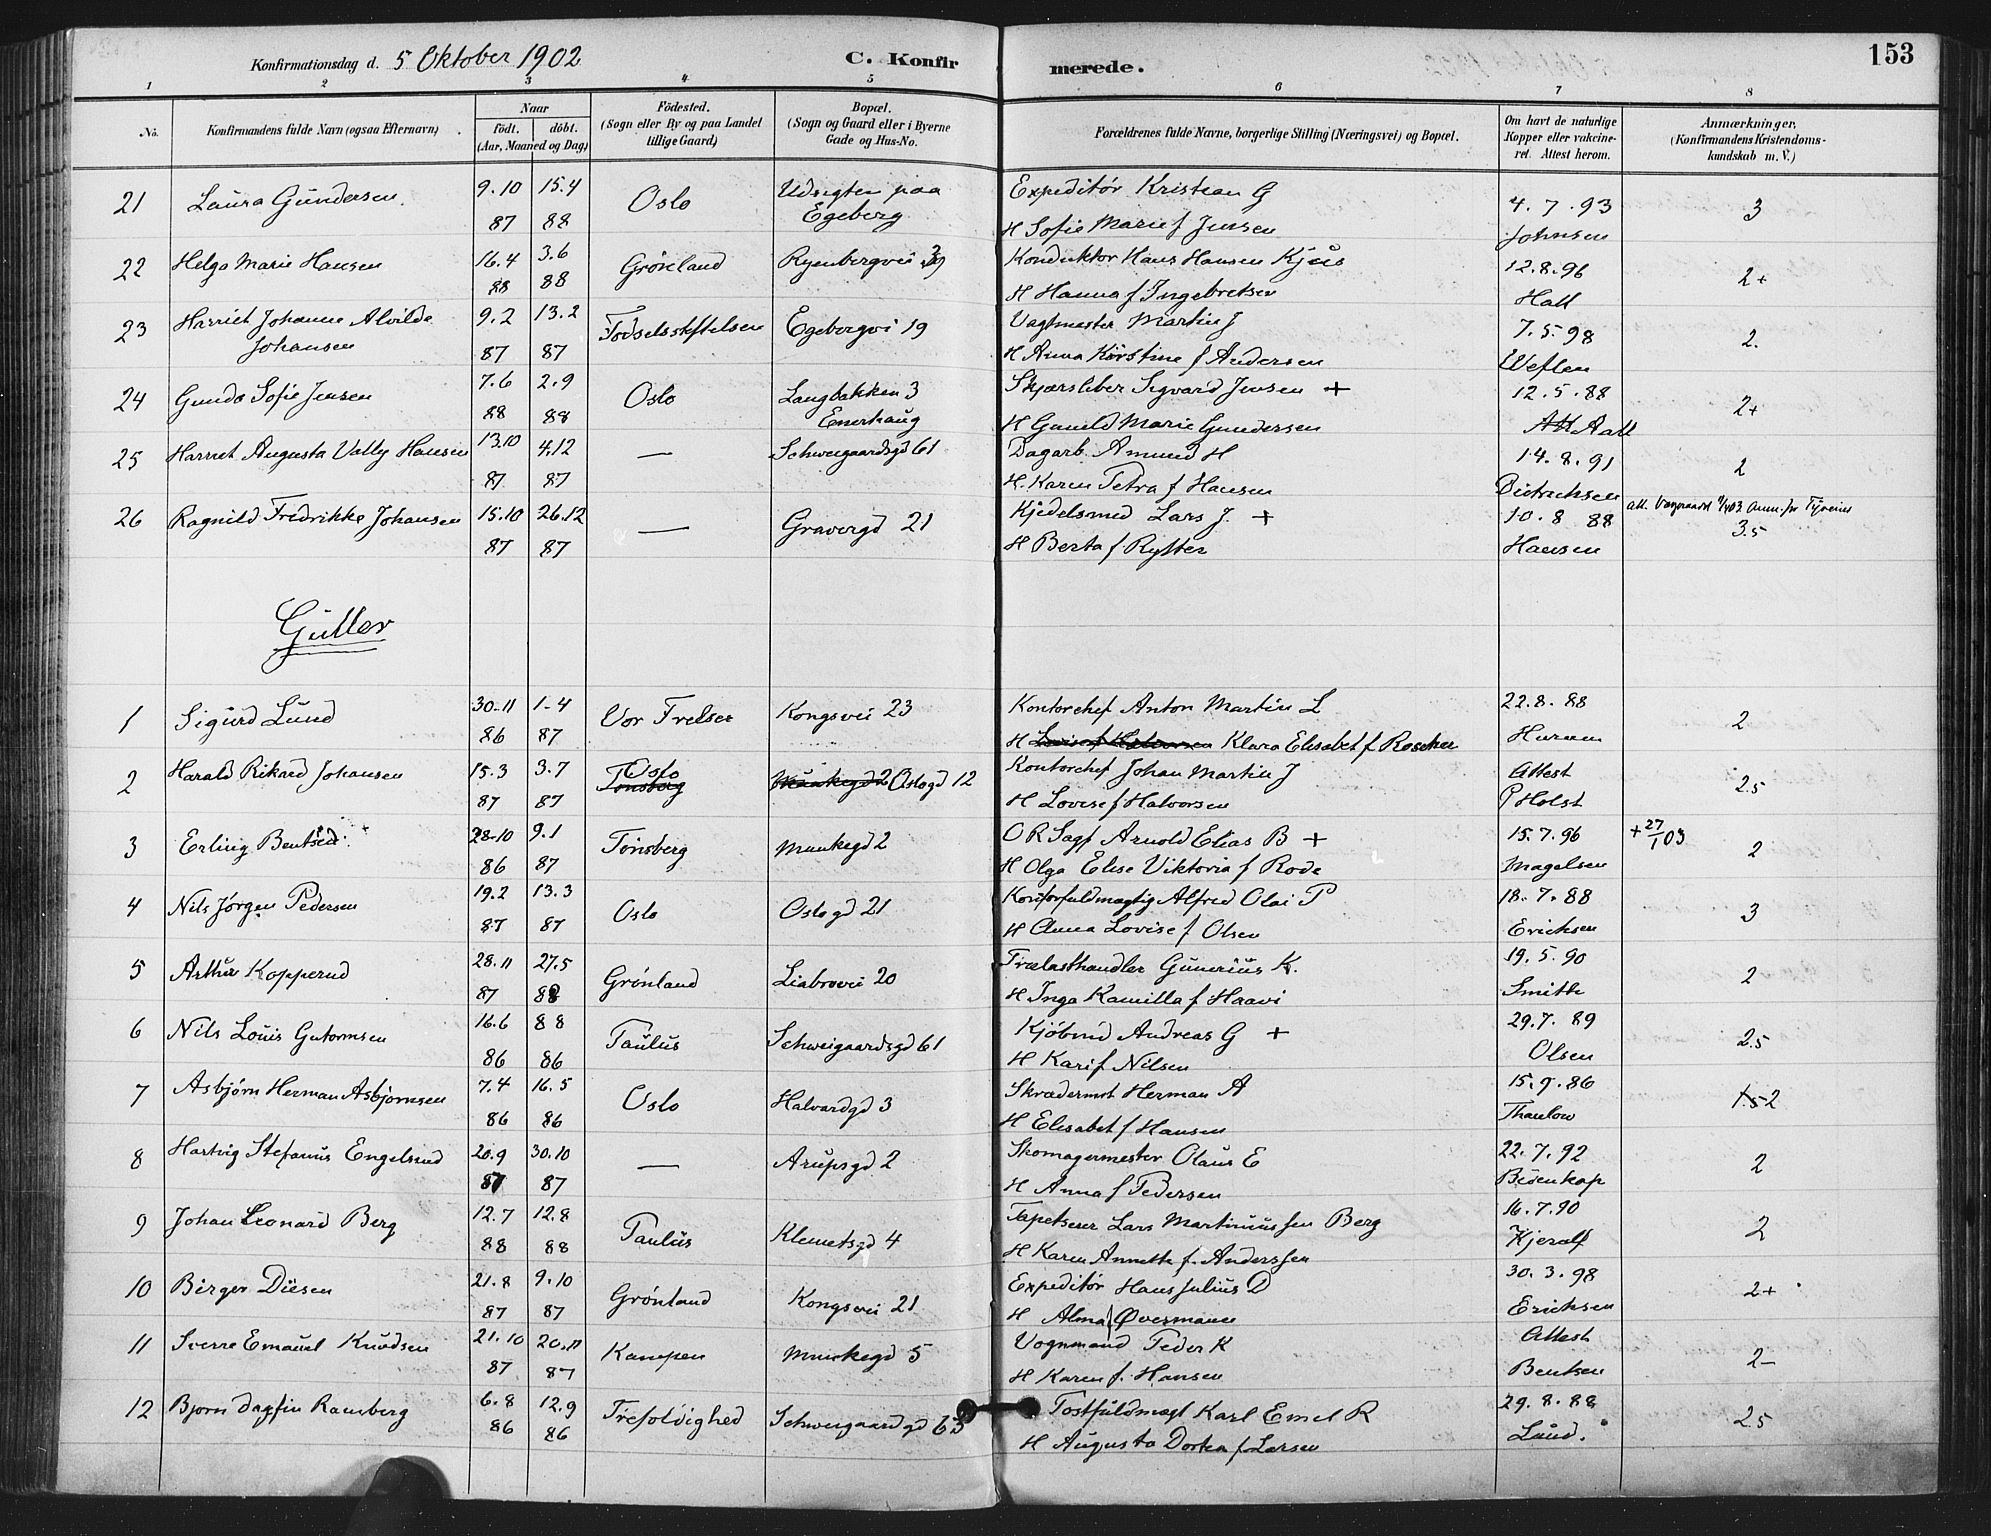 Konfirmationsdag d. 5 Oktober 1902 C. Konfirmerede. 153
1 2 3 4 5 6 7 8
No. Konfirmandens fulde Navn (ogsaa Efternavn) Naar födt. döbt. (Aar, Maaned og Dag) Födested. (Sogn eller By og paa Landet tillige Gaard) Bopæl. (Sogn og Gaard eller i Byerne Gade og Hus-No. Forældrenes fulde Navne, borgerlige Stilling (Næringsvei) og Bopæl. Om havt de naturlige Kopper eller vakcineret. Attest herom. Anmærkninger, (Konfirmandens Kristendomskundskab m. V.)
21 Laura Gundersen 9.10 15.4 Oslo Udsigten paa Expeditör Kristian G 4.7.93 3
87 88 Egeberg H Sofie Marie f Jensen Johnsen
22 Helga Marie Hansen 16.4 3.6 Grönland Ryenbergvei 39 Konduktor Hans Hansen Kjus 12.8.96 2+
88 88 H Hanna f Ingebretsen Hall
23 Harriet Johanne Alvilde 9.2 13.2 Födselsstiftelsen Egebergvei 19 Vagtmester Martin J 7.5.98 2.
Johansen 87 87 H Anna Kirstine f Andersen
24 Gunda Sofie Jensen 7.6 2.9 Oslo Langbakken 3 Skjærsliber Sigvard Jensen + 12.5.88 2+
88 88 Enerhaug H Gunild Marie Gundersen Aall
25 Harriet Augusta Vally Hansen 13.10 4.12 — Schweigaardsgd 61 Dagarb. Amund H 14.8.91 2
87 87 H. Karen Petra f Hansen Didrichsen
26 Ragnild Fredrikke Johansen 15.10 26.12 — Gravergd 21 Kjedelsmed Lars J. + 10.8 88 3.5
87 87 H Berta f. Rytter Hansen
Gutter
1 Sigurd Lund 30.11 1-4 Vor Frelser Kongsvei 23 Kontorchef Anton Martin L 22.8.88 2
86 87 H Klara Elisabet f Roscher
2 Harald Rikard Johansen 15.3 3.7 Oslo Tönsberg Munkegd 2 Oslogd 12 Kontorchef Johan Martin J Attest 2.5
87 87 H Lovise f Halvorsen P Holst
3 Erling Bentsen 28-10 9.1 Tönsberg Munkegd 2 O R Sagf Arnold Elias B + 15.7.96 2 + 27/1 03
86 87 H Olga Elise Viktoria f Rode Magelsen
4 Nils Jørgen Pedersen 19.2 13.3 Oslo Oslogd 21 Kontorfuldmægtig Alfred Olai P 18.7.88 3
87 87 H Anna Lovise f Olsen Erichsen
5 Arthur Kopperud 28.11 27.5 Grönland Liabrovei 20 Trælasthandler Gunerius K. 19.5.90 2
87 88 H Inga Kamilla f Haavi Smith
6 Nils Louis Gutormsen 16.6 8 8 Paulus Schweigaardsgd 61 Kjöbmd Andreas G + 29.7.89 2.5
86 86 H Kari f Nilsen Olsen
7 Asbjørn Herman Asbjørnsen 7.4 16.5 Oslo Halvardgd 3 Skrædermst Herman A 15.9.86 1.5 2
86 86 H Elisabet f Hansen Thaulow
8 Hartvig Stefanus Engelsrud 20.9 30.10 — Arupsgd 2 Skomagermester Olaus E 22.7.92 2
87 87 H Anna f Pedersen Bidenkap
9 Johan Leonard Berg 12.7 12.8 Paulus Klemetsgd 4 Tapetserer Lars Martinussen Berg 16.7.90 2
88 88 H Karen Annette f. Anderssen Kjerulf
10 Birger Diesen 21.8 9.10 Grönland Kongsvei 21 Expeditör Hans Julius D 30.3.98 2+
87 87 H Alma f Øvermann Erichsen
11 Sverre Emanuel Knudsen 21.10 20.11 Kampen Munkegd 5 Vognmand Peder K Attest 2-
87 87 H Karen f. Hansen Bentsen
12 Bjørn Dagfin Ramberg 6.8 12.9 Trefoldighed Schweigaardgd 63 Postfuldmægt Karl Emil R 29.8.88 2.5
86 86 H Augusta Dortea f Larsen Lund.